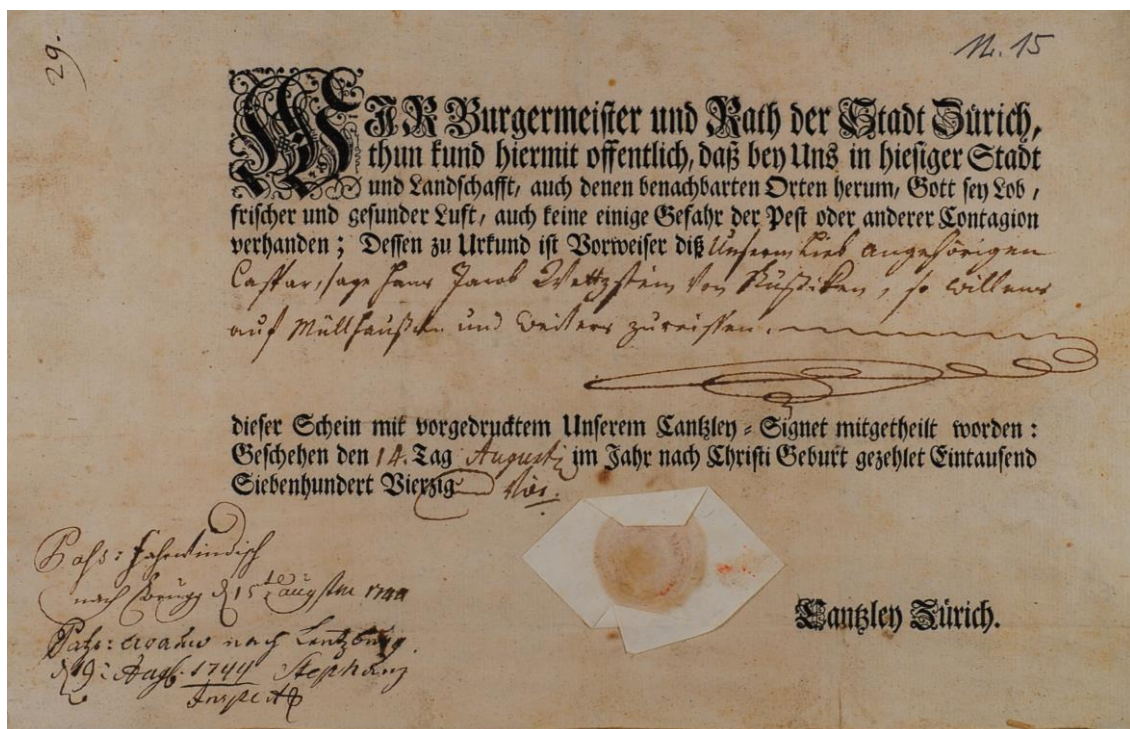 29.
N. 15
WIR Burgermeister und Rath der Stadt Zürich,
thun kund hiermit offentlich, daß bey Uns in hiesiger Stadt
und Landschafft, auch denen benachbarten Orten herum, Gott sey Lob,
frischer und gesunder Luft, auch keine einige Gefahr der Pest oder anderer Contagion
verhanden; Dessen zu Urkund ist Vorweiser diß Unserm Lieb angehörigen
Caspar, sage Hans Jacob Wettzstein von, so willens
auf Müllhaußen und weiters zureissen.
dieser Schein mit vorgedrucktem Unserem Cantzley-Signet mitgetheilt worden:
Geschehen den 14. Tag Augusti im Jahr nach Christi Geburt gezehlet Eintausend
Siebenhundert Vierzig und vier.
Cantzley Zürich.
Pass:
nach Brugg d 15 augsten 1744
nach Lentzburg.
d 19: Aug. 1744